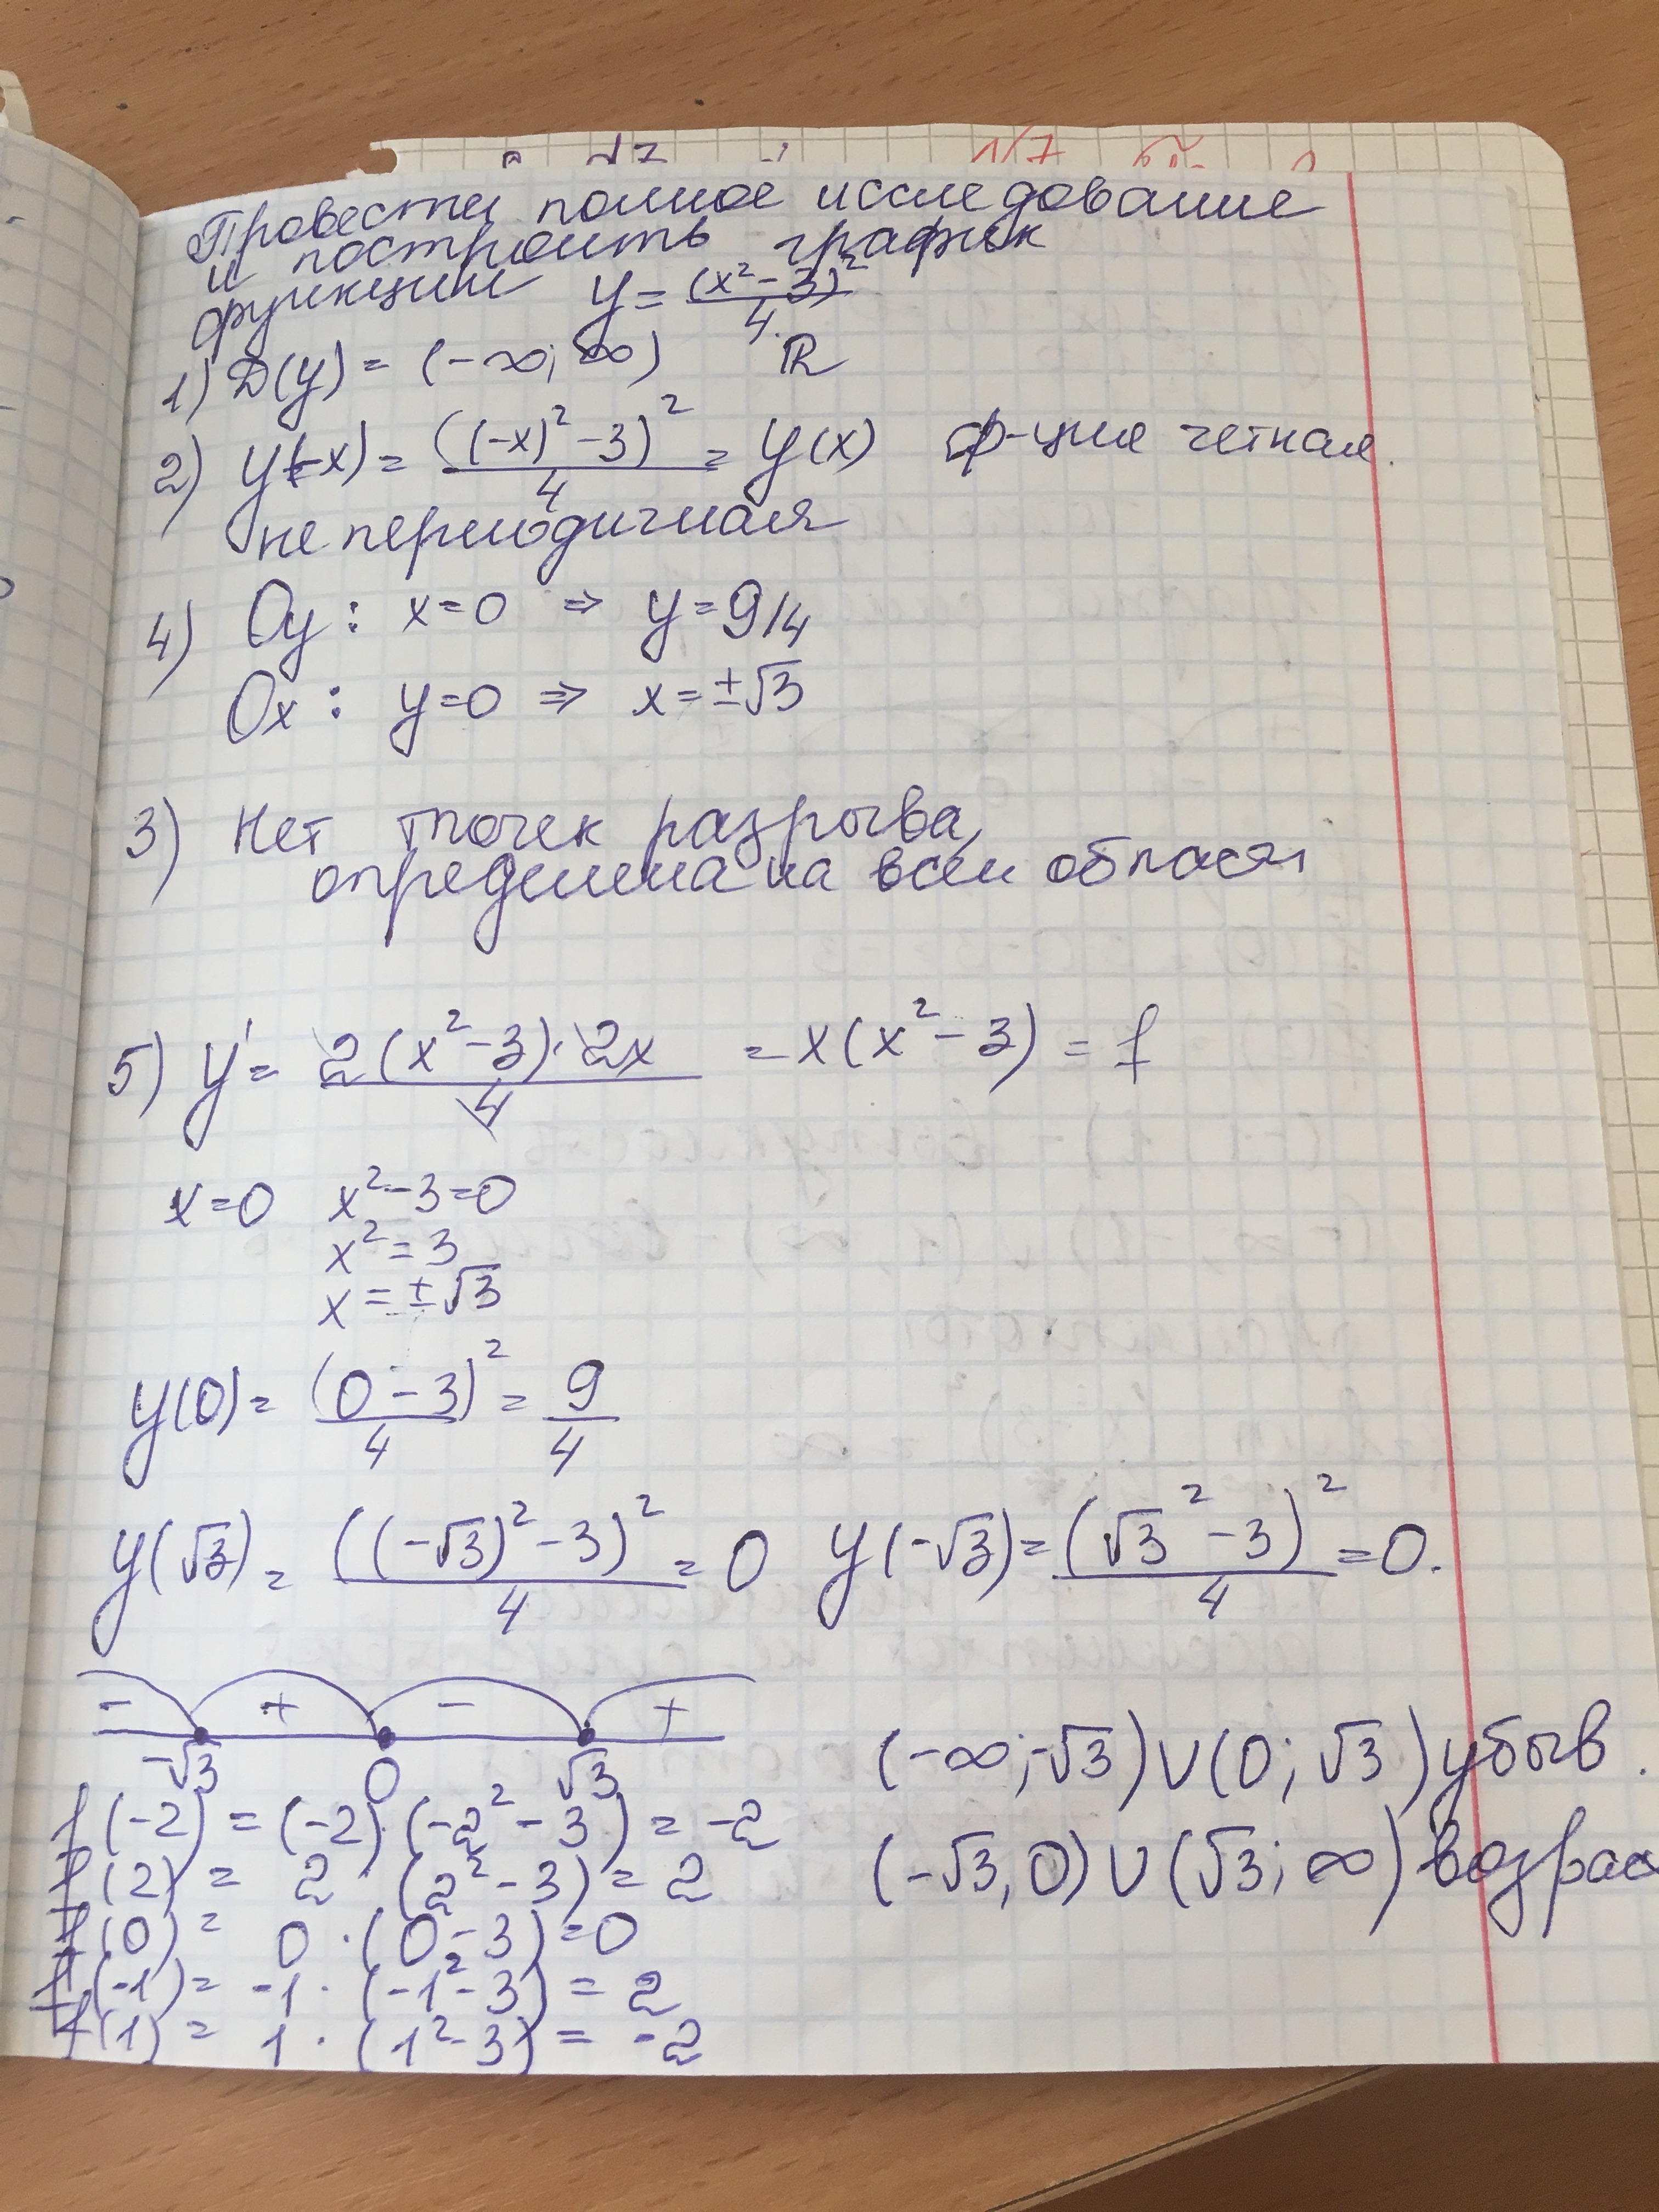 Провести полное исследование
и построить график
функции y = (x² - 3)² / 4
1) D(y) = (-∞; ∞) R
2) y(-x) = ((-x)² - 3)² / 4 = y(x) ф-ция четная.
не периодичная
4) Oy : x=0 ⇒ y=9/4
Ox : y=0 ⇒ x=±√3
3) Нет точек разрыва,
определена на всей области
5) y' = 2(x² - 3)·2x / 4 = x(x² - 3) = f
x=0 x² - 3=0
x² = 3
x = ±√3
y(0) = (0 - 3)² / 4 = 9/4
y(√3) = ((-√3)² - 3)² / 4 = 0 y(-√3) = (√3² - 3)² / 4 = 0.
- + - +
-√3 0 √3
(-∞; -√3) ∪ (0; √3) убыв.
(-√3, 0) ∪ (√3; ∞) возрас
f(-2) = (-2)·(-2² - 3) = -2
f(2) = 2 · (2² - 3) = 2
f(0) = 0 · (0 - 3) = 0
f(-1) = -1 · (-1² - 3) = 2
f(1) = 1 · (1² - 3) = -2